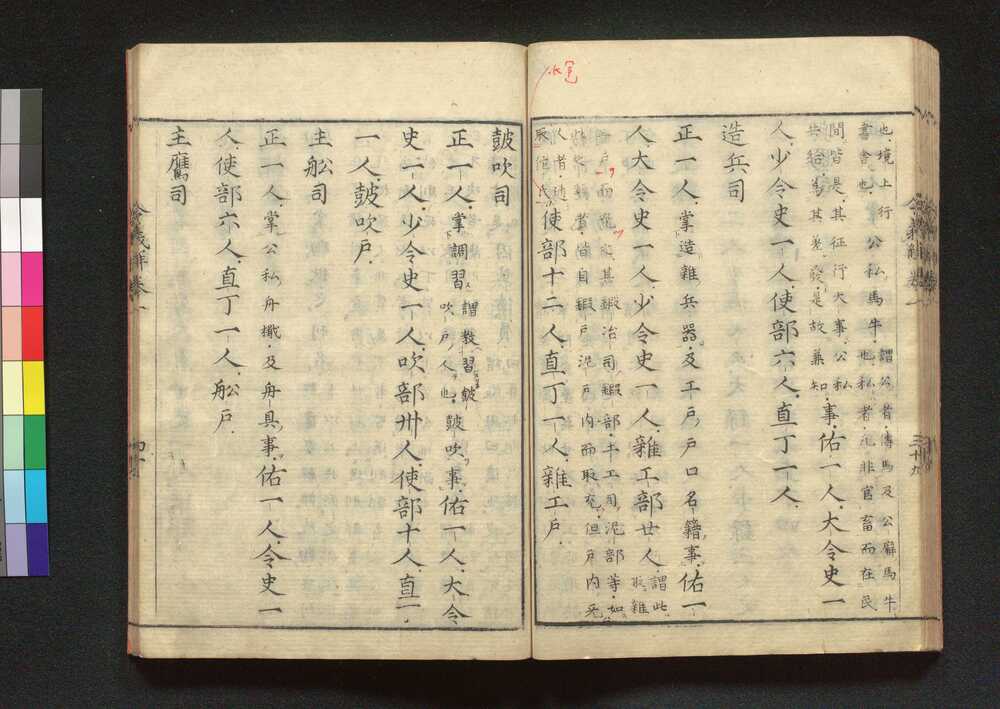 水色
也境上行
書會也
公私馬牛
謂公者傳馬及公廨馬牛
也私者凡非官畜而在民
間皆是其征行大事公私
共給為其差發是故兼知
事佑一人大令史一
人少令史一人使部六人直丁一人
造兵司
正一人掌造雜兵器及工戶戶口名籍事佑一
人大令史一人少令史一人雜工部廿人
謂此
取雜
工戶而其鍛冶司鍛部土工司泥部等如
者皆自鍛戶泥戶内而取充但戶内无
人者通
取他氏
使部十二人直丁一人雜工戶
三十九
令義解卷一
鼓吹司
正一人掌調習
謂教習鼓
吹戶人也
鼓吹事佑一人大令
史一人少令史一人吹部卅人使部十人直丁
一人鼓吹戶
主舩司
正一人掌公私舟檝及舟具事佑一人令史一
人使部六人直丁一人舩戶
主鷹司
令義解卷一
四十